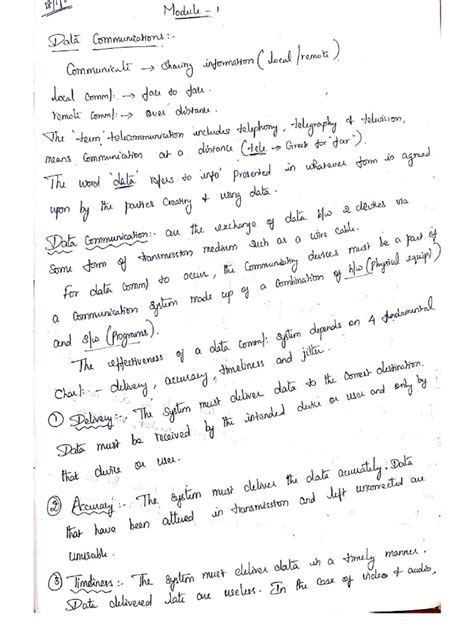 Module - 1
Data Communications :-
Communicate → sharing information (local / remote)
local comm/: → face to face.
remote comm/: → over distance.
The 'term' telecommunication includes telephony, telegraphy & television,
means communication at a distance (tele → Greek for "far").
The word 'data' refers to 'info' presented in whatever form is agreed
upon by the parties creating & using data.
Data Communication :- are the exchange of data b/w 2 devices via
some form of transmission medium such as a wire cable.
For data comm/ to occur, the communicating devices must be a part of
a communication system made up of a combination of h/w (Physical equip)
and s/w (Programs).
The effectiveness of a data comm/. system depends on 4 fundamental
Char/: - delivery, accuracy, timeliness and jitter.
① Delivery :- The system must deliver data to the correct destination.
Data must be received by the intended device or user and only by
that device or user.
② Accuracy :- The system must deliver the data accurately. Data
that have been altered in transmission and left uncorrected are
unusable.
③ Timeliness :- The system must deliver data in a timely manner.
Data delivered late are useless. In the case of video & audio,